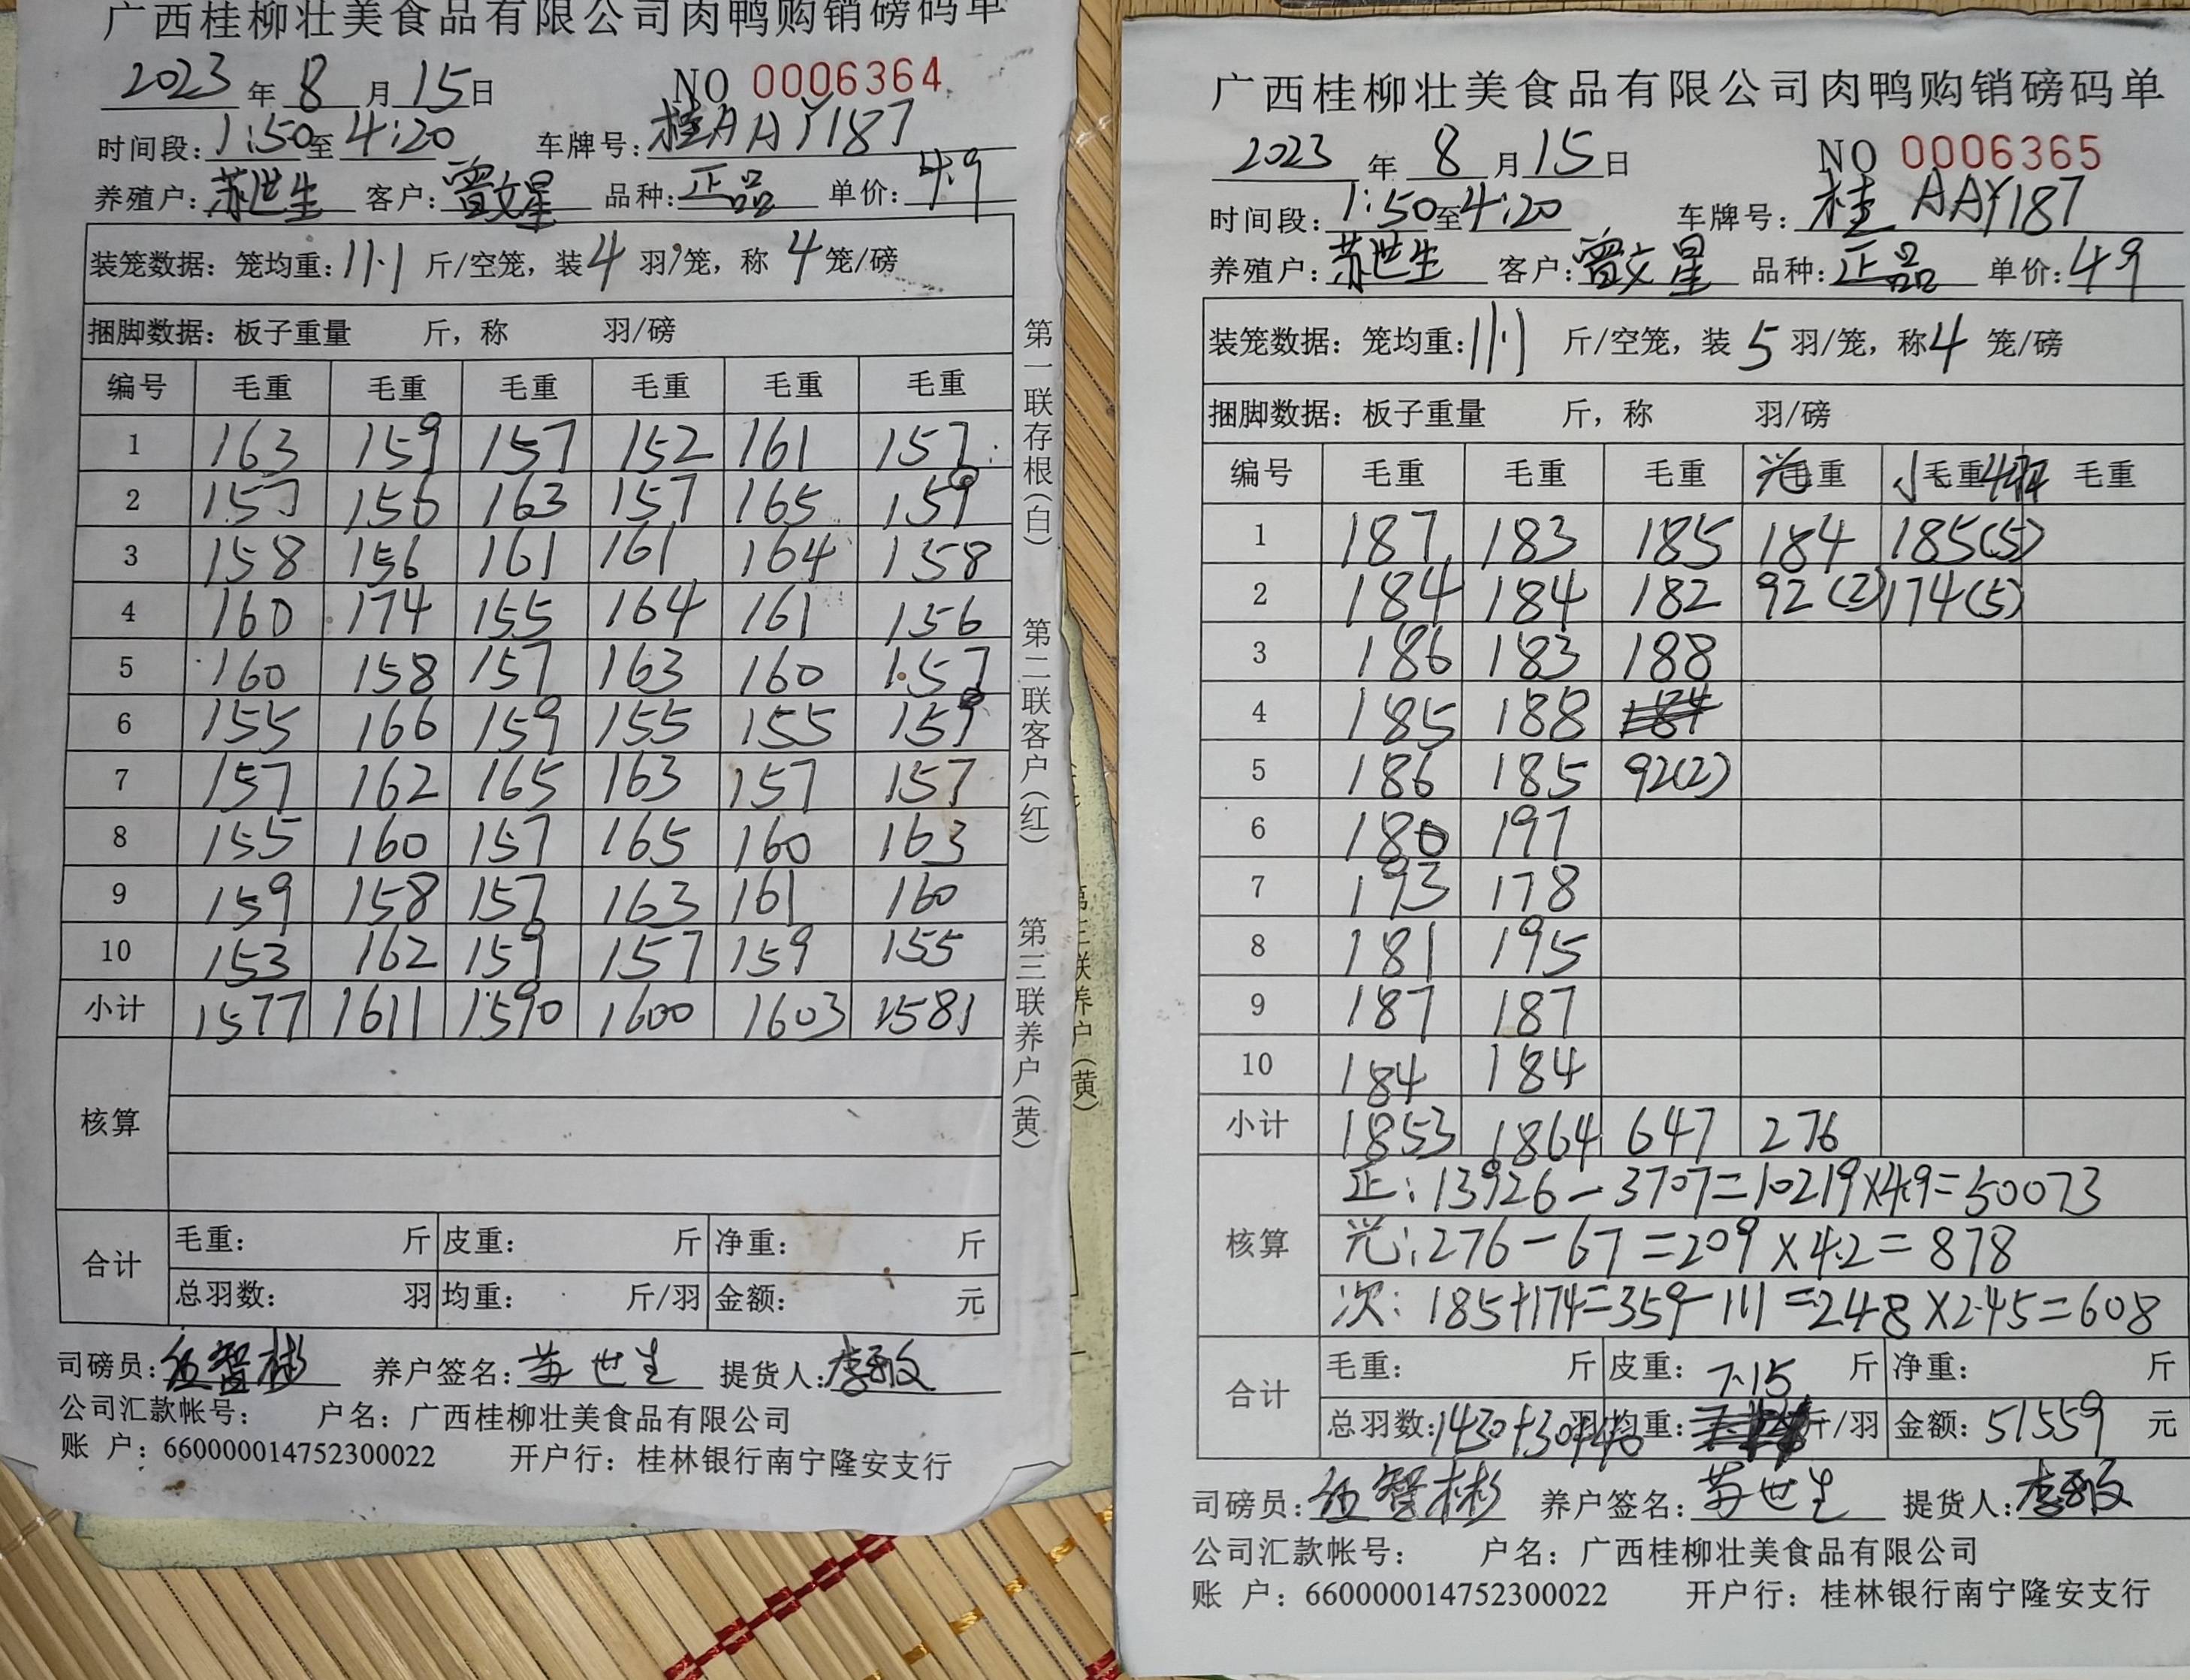 广西桂柳壮美食品有限公司肉鸭购销磅码单
2023 年 8 月 15 日 NO 0006364
时间段: 1:50 至 4:20 车牌号: 桂AAY187
养殖户: 苏世生 客户: 曾文星 品种: 正品 单价: 4.9
装笼数据: 笼均重: 11.1 斤/空笼, 装 4 羽/笼, 称 4 笼/磅
捆脚数据: 板子重量 斤, 称 羽/磅
编号 毛重 毛重 毛重 毛重 毛重 毛重
1 163 159 157 152 161 157
2 157 156 163 157 165 159
3 158 156 161 161 164 158
4 160 174 155 164 161 156
5 160 158 157 163 160 157
6 155 166 159 155 155 159
7 157 162 165 163 157 157
8 155 160 157 165 160 163
9 159 158 157 163 161 160
10 153 162 159 157 159 155
小计 1577 1611 1590 1600 1603 1581
核算
合计 毛重: 斤 皮重: 斤 净重: 斤
总羽数: 羽 均重: 斤/羽 金额: 元
司磅员: 养户签名: 苏世生 提货人:
公司汇款帐号: 户名: 广西桂柳壮美食品有限公司
账 户: 660000014752300022 开户行: 桂林银行南宁隆安支行
第一联存根(白) 第二联客户(红) 第三联养户(黄)
广西桂柳壮美食品有限公司肉鸭购销磅码单
2023 年 8 月 15 日 NO 0006365
时间段: 1:50 至 4:20 车牌号: 桂 AAY187
养殖户: 苏世生 客户: 曾文星 品种: 正品 单价: 4.9
装笼数据: 笼均重: 11.1 斤/空笼, 装 5 羽/笼, 称 4 笼/磅
捆脚数据: 板子重量 斤, 称 羽/磅
编号 毛重 毛重 毛重 毛重 毛重 毛重
1 187 183 185 184 185(5)
2 184 184 182 92(2) 174(5)
3 186 183 188
4 185 188
5 186 185 92(2)
6 180 197
7 193 178
8 181 195
9 187 187
10 184 184
小计 1853 1864 647 276
核算 正: 13926-3707=10219×4.9=50073
光: 276-67=209×4.2=878
次: 185+174=359-111=248×2.45=608
合计 毛重: 斤 皮重: 7.15 斤 净重: 斤
总羽数: 1430+30+40 羽 均重: 斤/羽 金额: 51559 元
司磅员: 养户签名: 苏世生 提货人:
公司汇款帐号: 户名: 广西桂柳壮美食品有限公司
账 户: 660000014752300022 开户行: 桂林银行南宁隆安支行